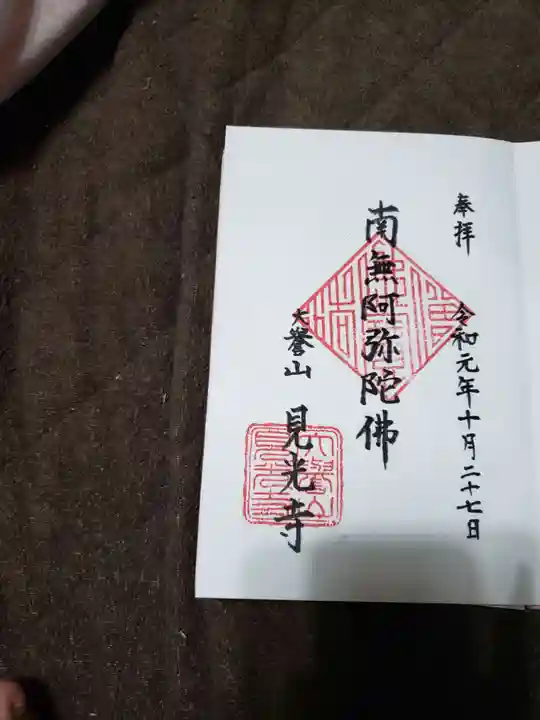 奉拝
令和元年十月二十七日
南無阿弥陀佛
大誉山
見光寺